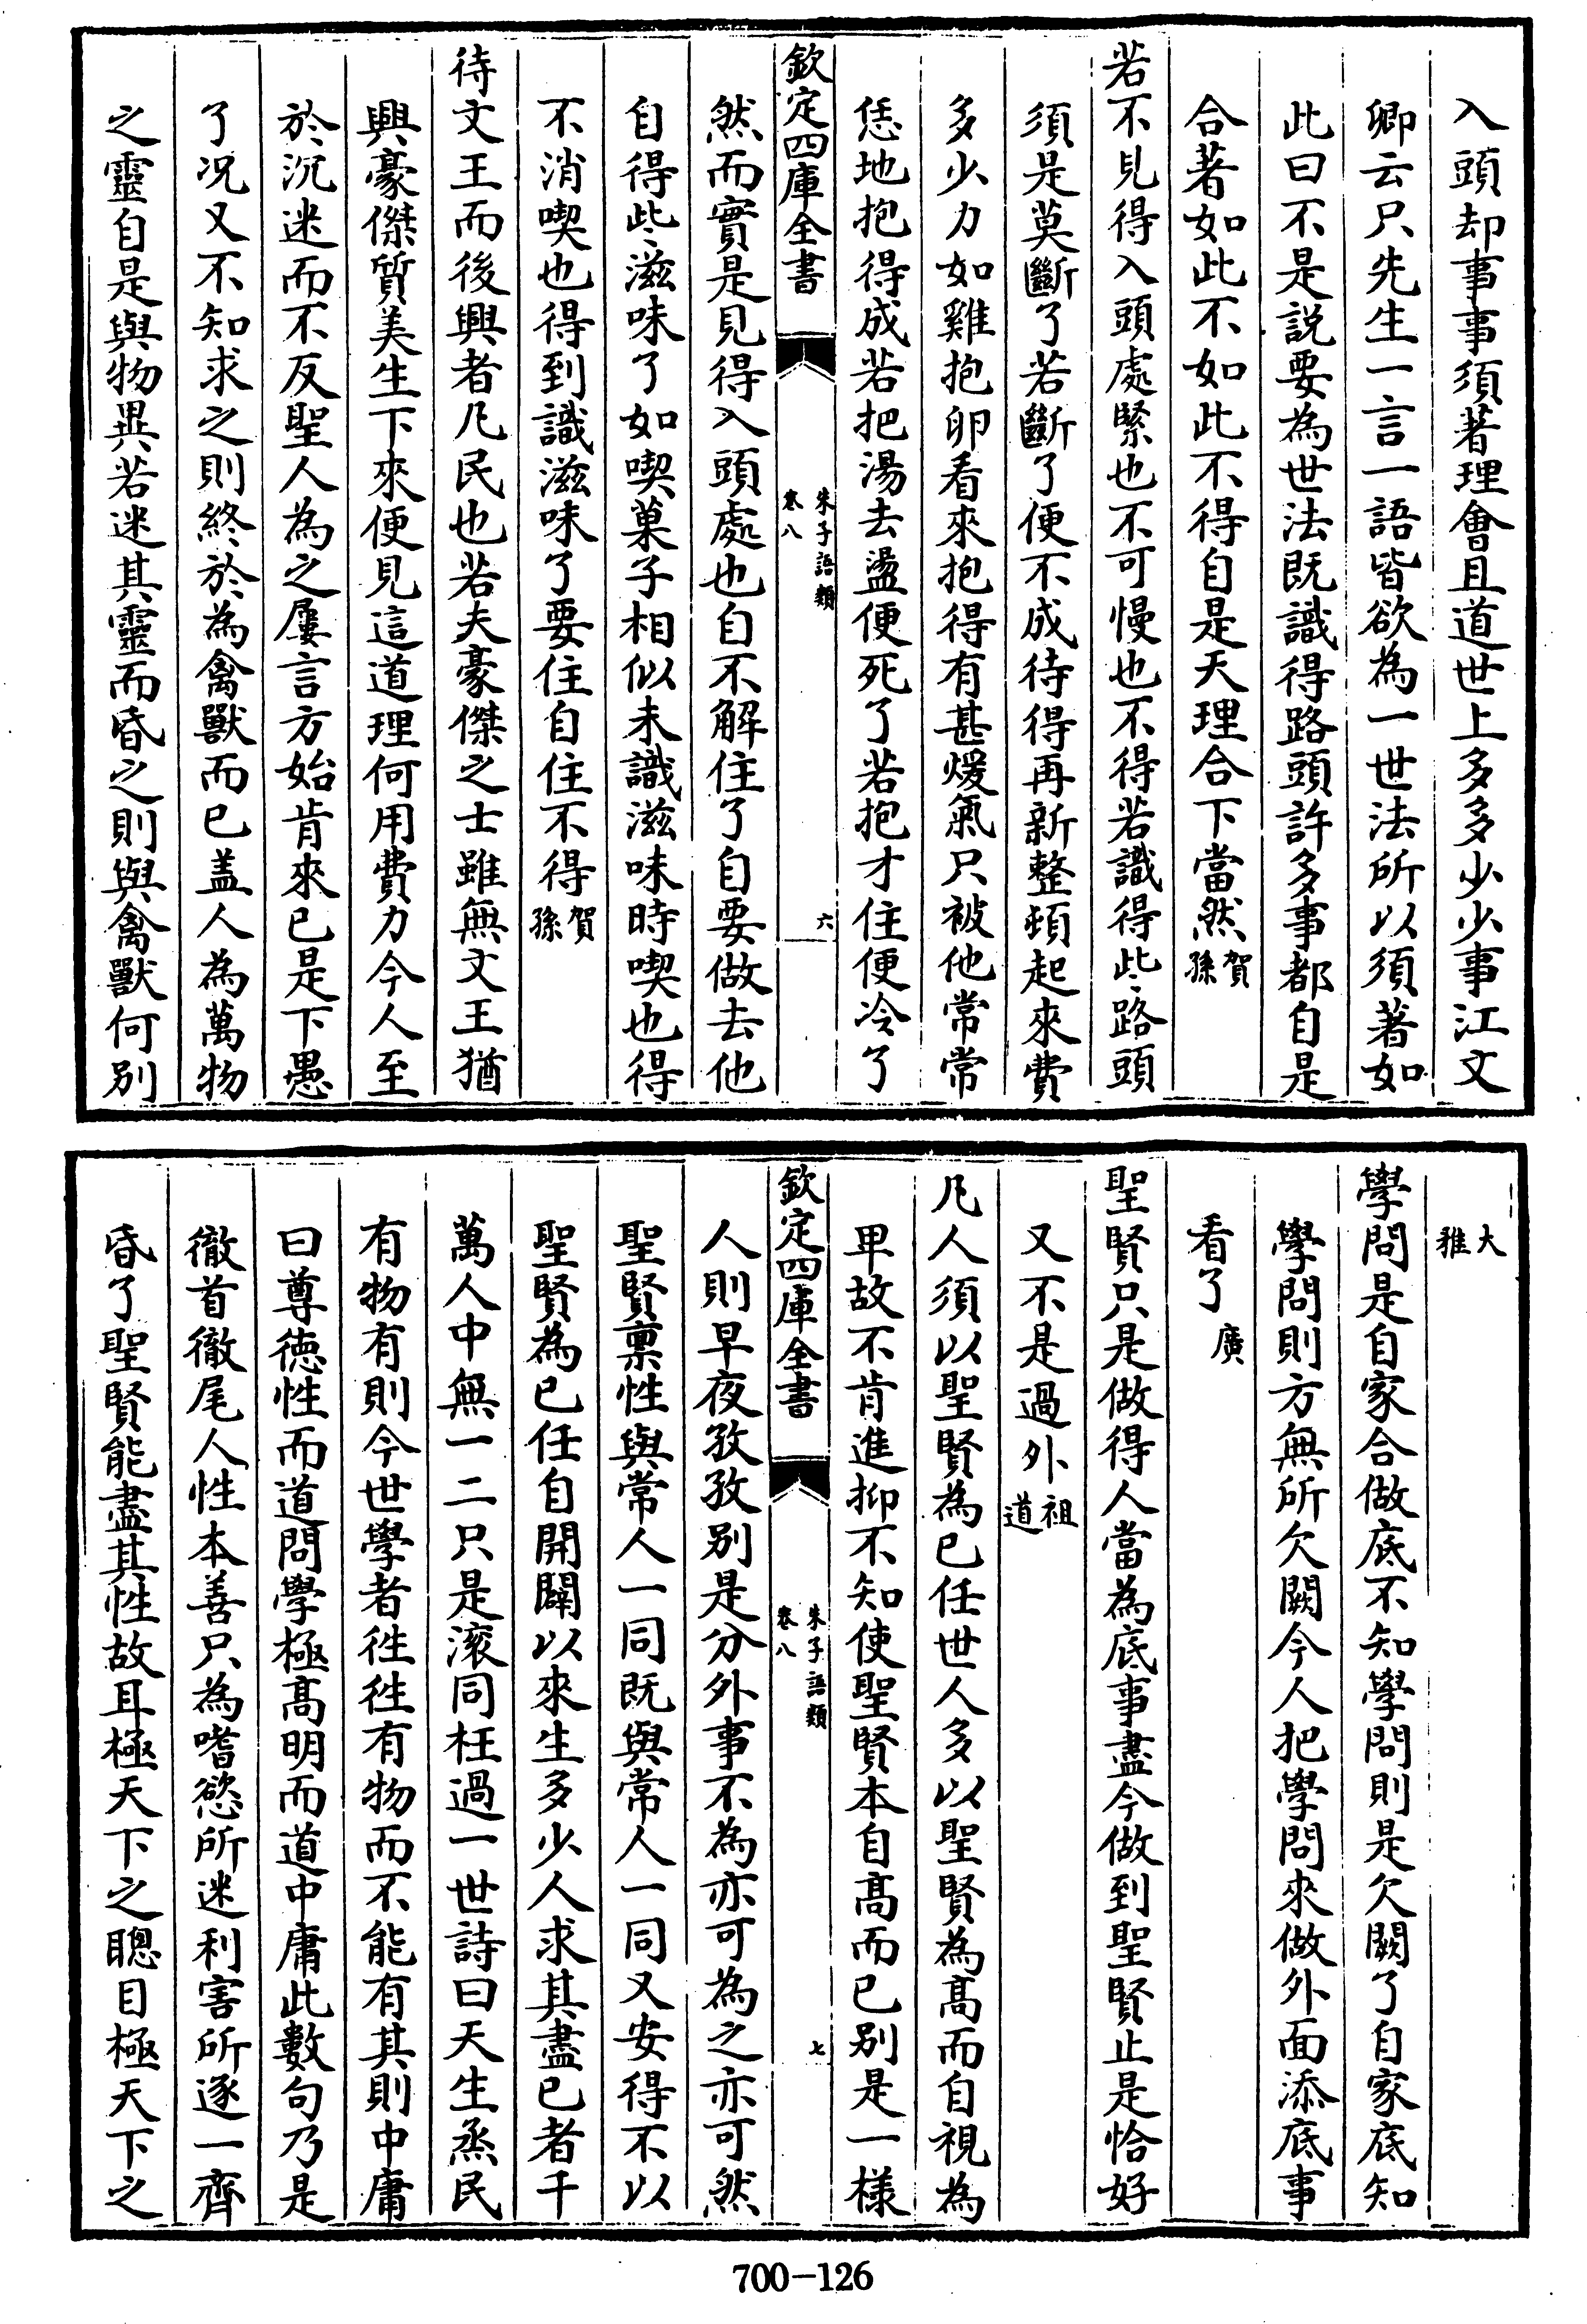 入頭却事事須著理會且道世上多多少少事江文
卿云只先生一言一語皆欲為一世法所以須著如
此曰不是説要為世法既識得路頭許多事都自是
合著如此不如此不得自是天理合下當然賀孫
若不見得入頭處緊也不可慢也不得若識得些路頭
須是莫斷了若斷了便不成待得再新整頓起來費
多少力如雞抱卵看來抱得有甚煖氣只被他常常
恁地抱得成若把湯去盪便死了若抱才住便冷了
欽定四庫全書
朱子語類
卷八
六
然而實是見得入頭處也自不解住了自要做去他
自得些滋味了如喫菓子相似未識滋味時喫也得
不消喫也得到識滋味了要住自住不得賀孫
待文王而後興者凡民也若夫豪傑之士雖無文王猶
興豪傑質美生下來便見這道理何用費力今人至
於沉迷而不反聖人為之屢言方始肯來已是下愚
了况又不知求之則終於為禽獸而已盖人為萬物
之靈自是與物異若迷其靈而昏之則與禽獸何別
大雅
學問是自家合做底不知學問則是欠闕了自家底知
學問則方無所欠闕今人把學問來做外面添底事
看了廣
聖賢只是做得人當為底事盡今做到聖賢止是恰好
又不是過外祖道
凡人須以聖賢為已任世人多以聖賢為髙而自視為
卑故不肯進抑不知使聖賢本自髙而已別是一樣
欽定四庫全書
朱子語類
卷八
七
人則早夜孜孜別是分外事不為亦可為之亦可然
聖賢禀性與常人一同既與常人一同又安得不以
聖賢為已任自開闢以來生多少人求其盡已者千
萬人中無一二只是滚同枉過一世詩曰天生烝民
有物有則今世學者往往有物而不能有其則中庸
曰尊徳性而道問學極髙明而道中庸此數句乃是
徹首徹尾人性本善只為嗜慾所迷利害所逐一齊
昏了聖賢能盡其性故耳極天下之聰目極天下之
700-126